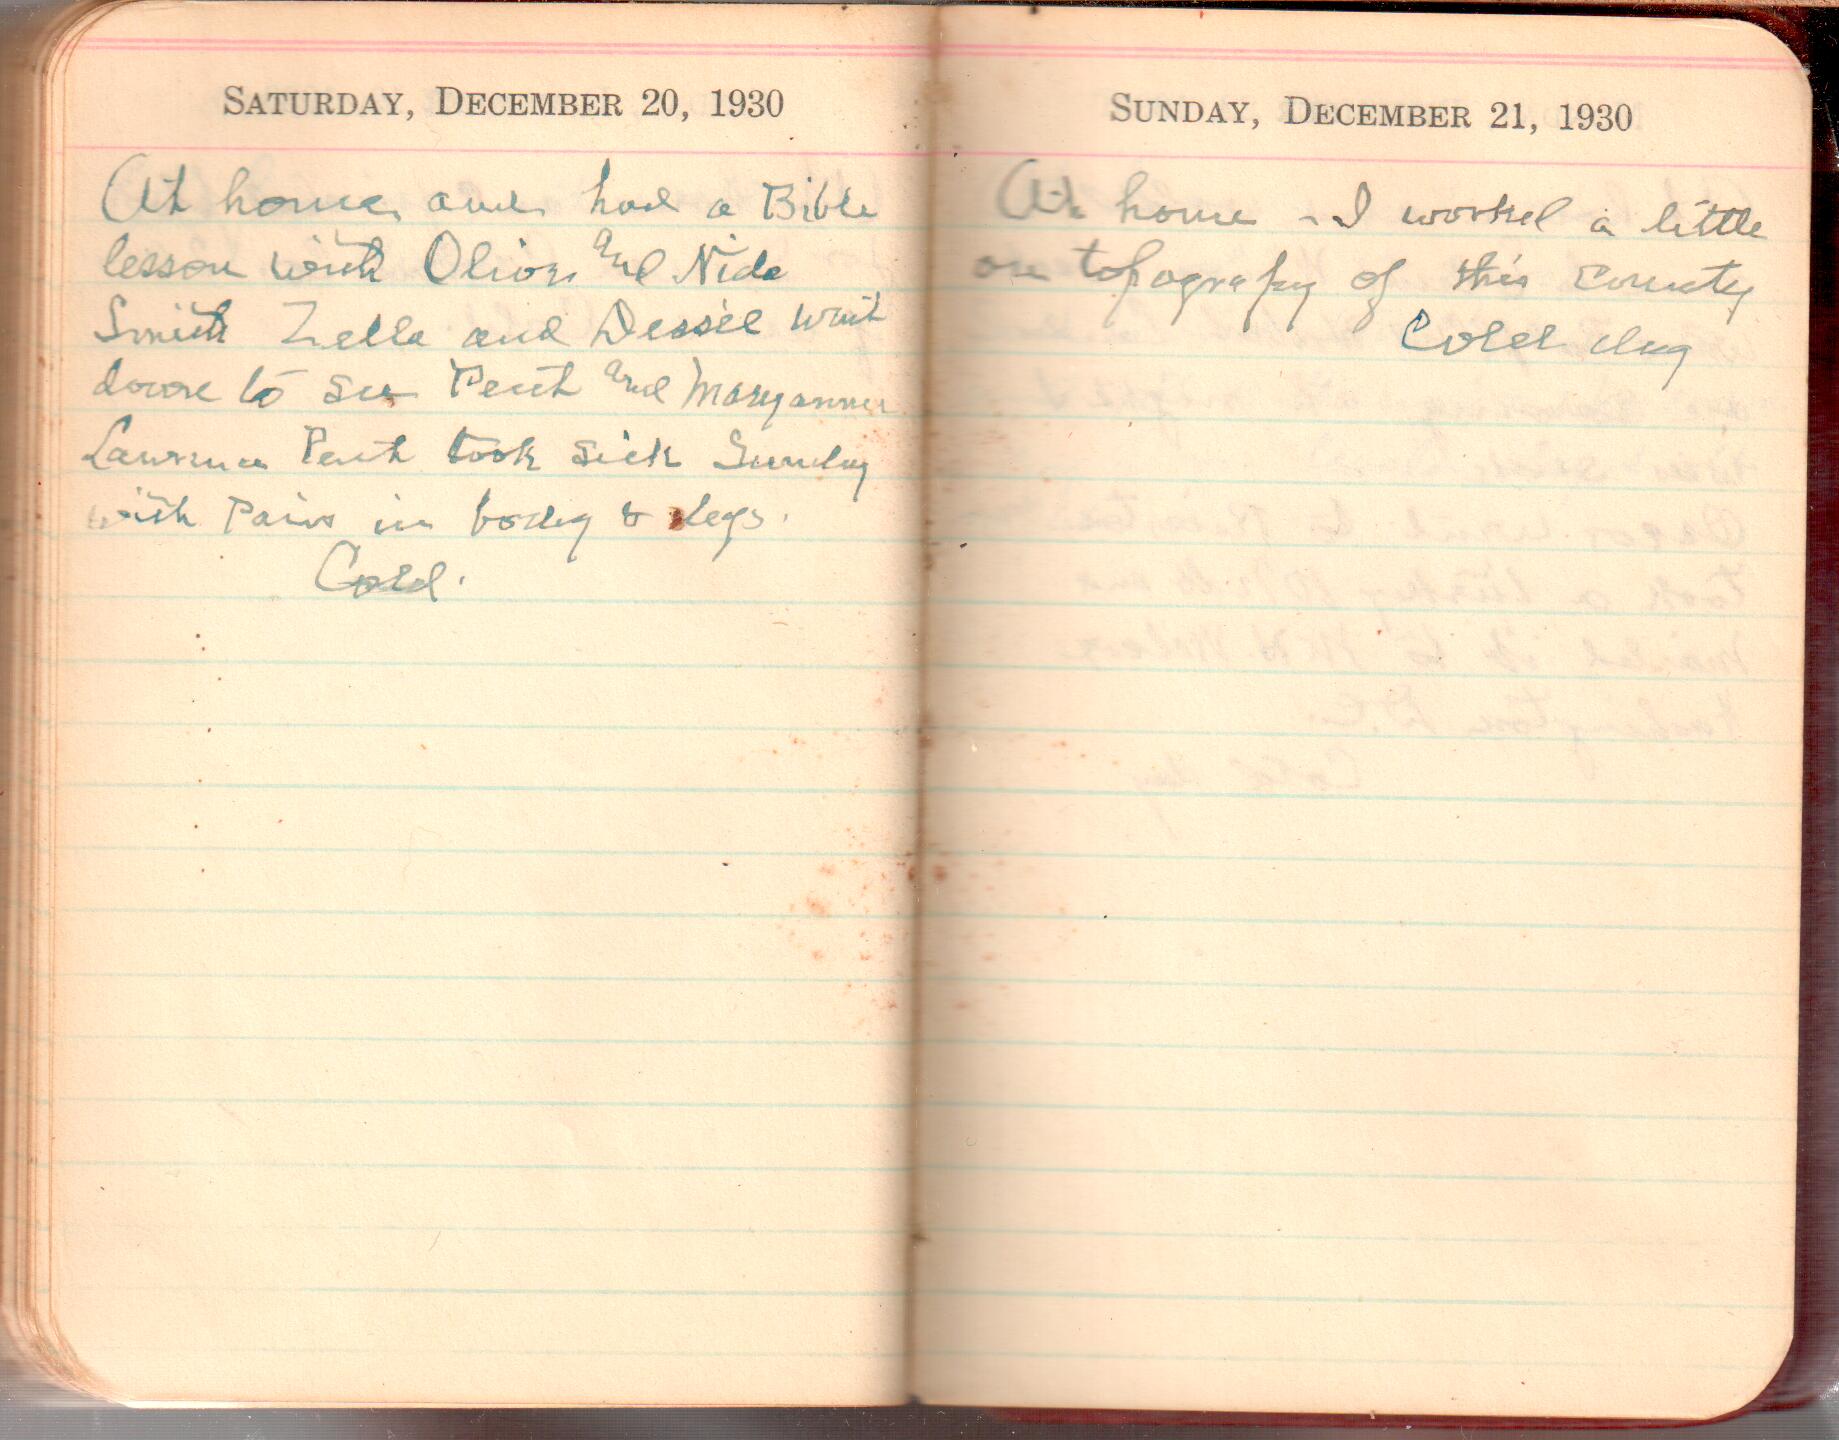 SATURDAY, DECEMBER 20, 1930
At home and had a Bible
lesson with Olion and Nida
Smith Zella and Dessel went
down to see Pent and Maryanne
Lawrence Pent took sick Sunday
with Pains in body & legs.
Cold.
SUNDAY, DECEMBER 21, 1930
At home - I worked a little
on topografy of this county
Cold day